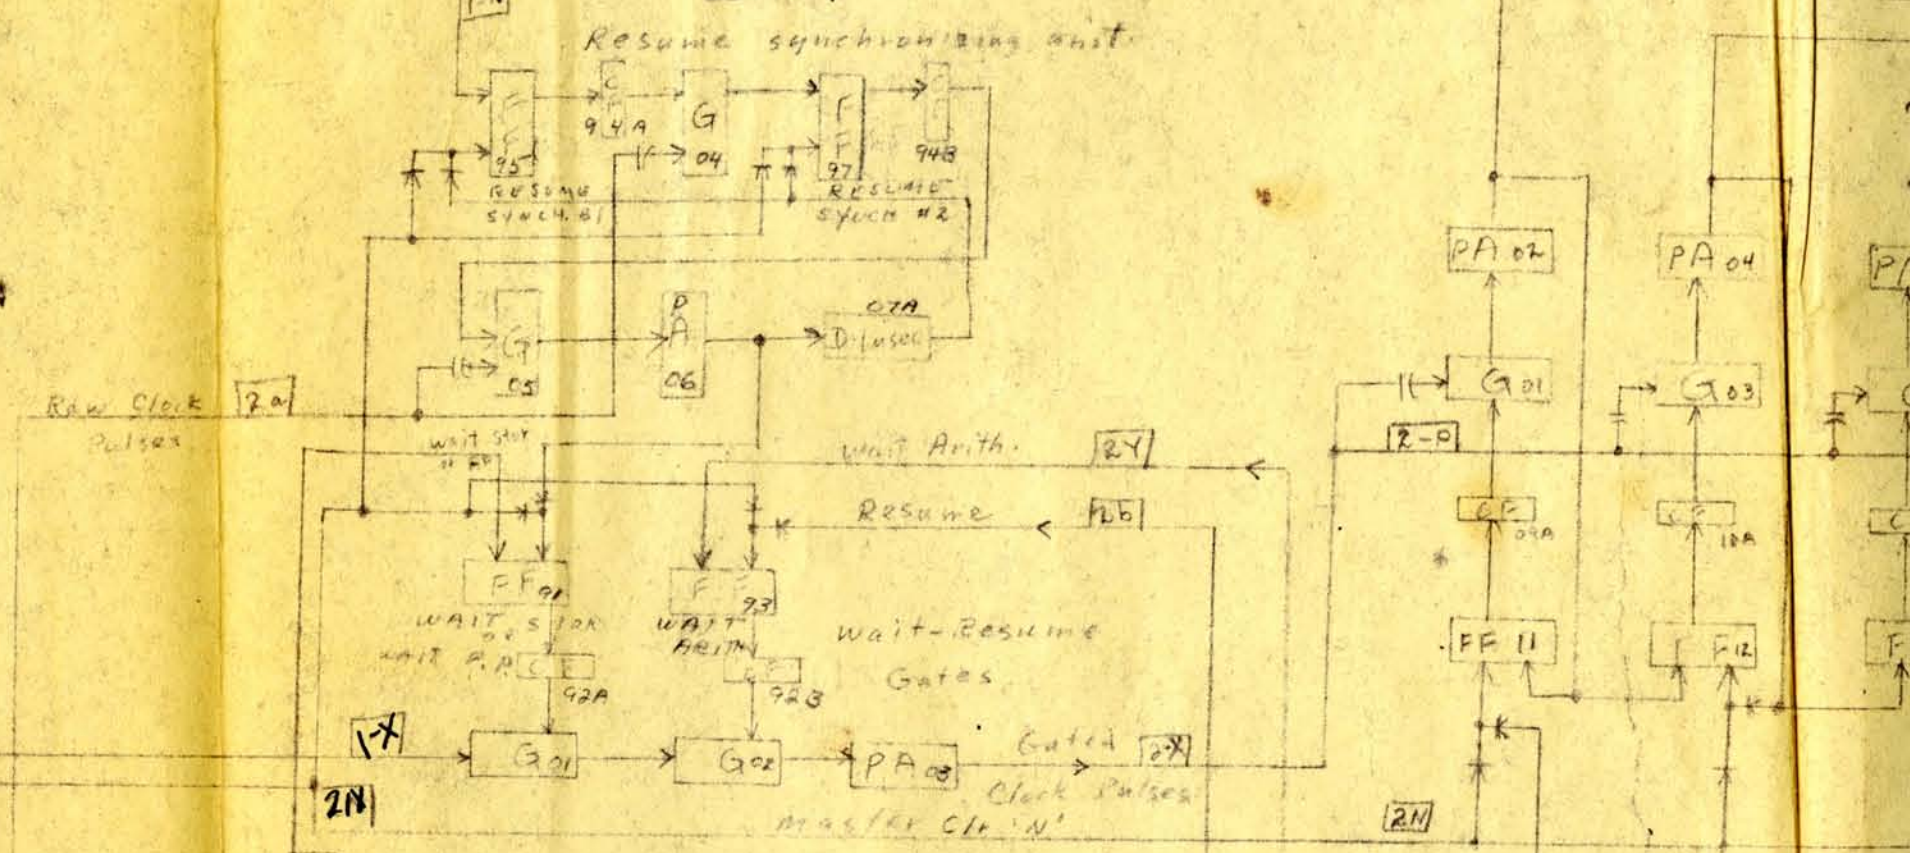 Resume synchronizing unit.
FF
95
RESUME
SYNCH. #1
C
F
94A
G
04
FF
97
RESUME
SYNCH #2
94B
G
05
P
A
06
07A
D 1µsec
Raw Clock
Pulses
2a
wait stor
or
wait Arith.
2Y
Resume
2b
FF 91
WAIT STOR
or
WAIT P.P.
CF
92A
FF
93
WAIT
ARITH
CF
92B
Wait-Resume
Gates
1-X
G01
G02
PA 03
Gated
Clock Pulses
2-X
2N
Master Clr 'N'
2N
PA 02
G01
2-P
CF
09A
FF 11
PA 04
G03
CF
10A
FF12